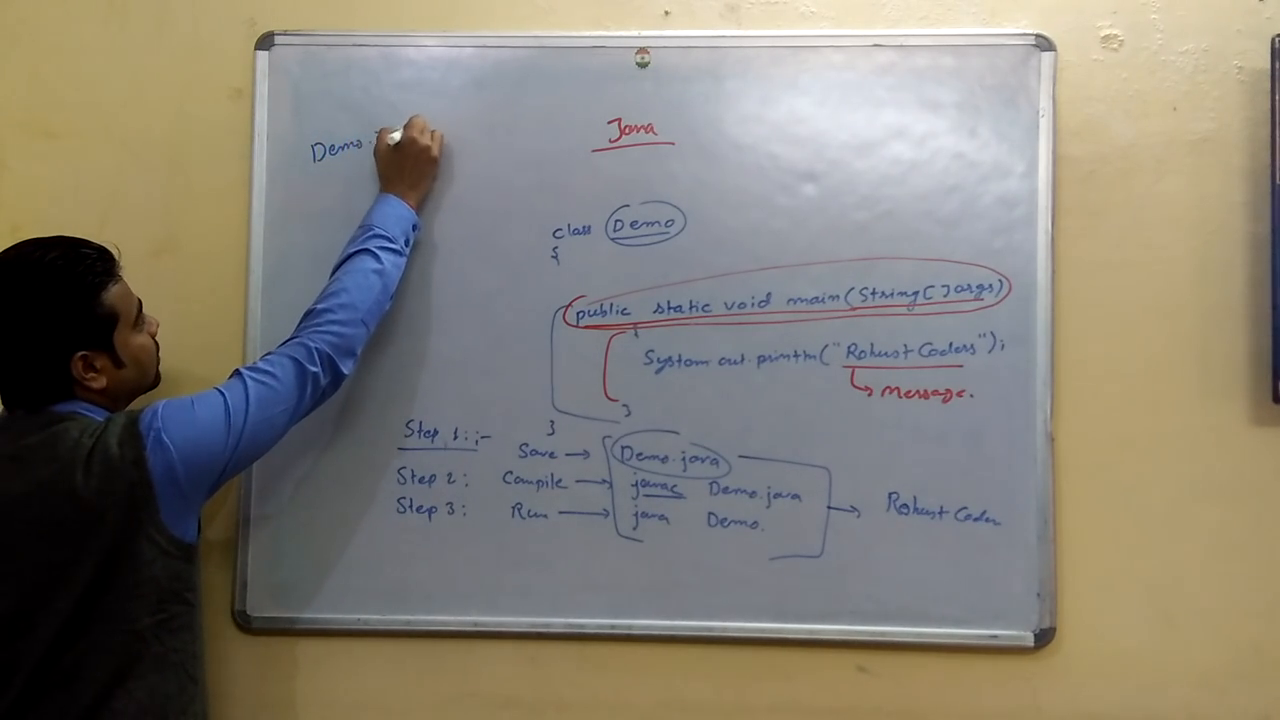 Java
Demo.
class Demo
{
public static void main(String[] args)
{
System.out.println("Robust Coders");
Message.
}
}
Step 1:;-
Save → Demo.java
Step 2: Compile → javac Demo.java
Step 3: Run → java Demo.
→ Robust Coder